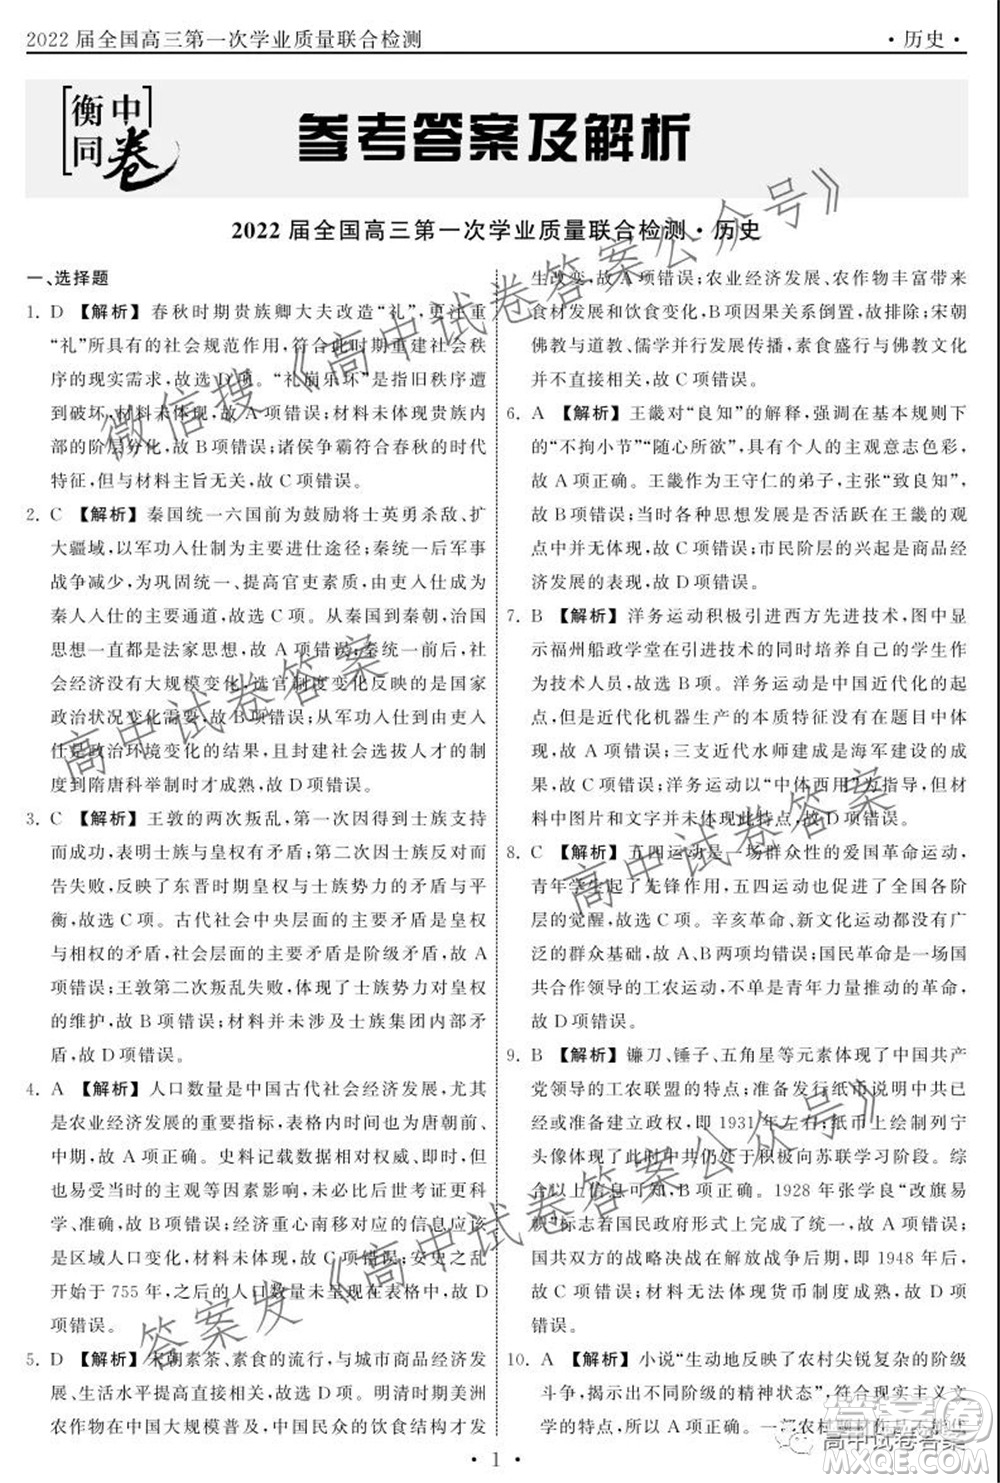 2022 届全国高三第一次学业质量联合检测
·历史·
衡中
同卷
参考答案及解析
2022 届全国高三第一次学业质量联合检测·历史
一、选择题
1. D 【解析】春秋时期贵族卿大夫改造“礼”，更注重
“礼”所具有的社会规范作用，符合此时期重建社会秩
序的现实需求，故选 D 项。“礼崩乐坏”是指旧秩序遭
到破坏，材料未体现，故 A 项错误；材料未体现贵族内
部的阶层分化，故 B 项错误；诸侯争霸符合春秋的时代
特征，但与材料主旨无关，故 C 项错误。
2. C 【解析】秦国统一六国前为鼓励将士英勇杀敌、扩
大疆域，以军功入仕制为主要进仕途径；秦统一后军事
战争减少，为巩固统一、提高官吏素质，由吏入仕成为
秦人入仕的主要通道，故选 C 项。从秦国到秦朝，治国
思想一直都是法家思想，故 A 项错误；秦统一前后，社
会经济没有大规模变化，选官制度变化反映的是国家
政治状况变化需要，故 B 项错误；从军功入仕到由吏入
仕是政治环境变化的结果，且封建社会选拔人才的制
度到隋唐科举制时才成熟，故 D 项错误。
3. C 【解析】王敦的两次叛乱，第一次因得到士族支持
而成功，表明士族与皇权有矛盾；第二次因士族反对而
告失败，反映了东晋时期皇权与士族势力的矛盾与平
衡，故选 C 项。古代社会中央层面的主要矛盾是皇权
与相权的矛盾，社会层面的主要矛盾是阶级矛盾，故 A
项错误；王敦第二次叛乱失败，体现了士族势力对皇权
的维护，故 B 项错误；材料并未涉及士族集团内部矛
盾，故 D 项错误。
4. A 【解析】人口数量是中国古代社会经济发展，尤其
是农业经济发展的重要指标；表格内时间属于唐朝前、
中期，故 A 项正确。史料记载都有相对权威、即时、典
型，但受到当时的主观等因素影响，未必比后世考证更科
学、准确，故 B 项错误；经济重心南移的信息应该
是区域人口变化，材料未体现，故 C 项错误；安史之乱
开始于 755 年，此后的人口数量没有呈现在表格中，故 D
项错误。
5. D 【解析】宋朝素茶、素食的流行，与城市商品经济发
展、生活水平提高直接相关，故选 D 项。明清时期美洲
农作物在中国大规模普及，中国民众的饮食结构才发
生改变，故 A 项错误；农业经济发展、农作物丰富带来
食材发展和饮食变化，B 项因果关系倒置，故排除；宋朝
佛教与道教、儒学并行发展传播，素食盛行与佛教文化
并不直接相关，故 C 项错误。
6. A 【解析】王畿对“良知”的解释，强调在基本规则下
的“不拘小节”“随心所欲”，具有个人的主观意志色彩，
故 A 项正确。王畿作为王守仁的弟子，主张“致良知”，
故 B 项错误；当时各种思想发展是否活跃在王畿的观
点中并无体现，故 C 项错误；市民阶层的兴起是商品经
济发展的表现，故 D 项错误。
7. B 【解析】洋务运动积极引进西方先进技术，图中显
示福州船政学堂在引进技术的同时培养自己的学生作
为技术人员，故选 B 项。洋务运动是中国近代化的起
点，但是近代化机器生产的本质特征没有在题目中体
现，故 A 项错误；三支近代水师建成是海军建设的成
果，故 C 项错误；洋务运动以“中体西用”为指导，但材
料中图片和文字并未体现此特点，故 D 项错误。
8. C 【解析】五四运动是一场群众性的爱国革命运动，
青年学生起了先锋作用，五四运动促进了全国各阶
层的觉醒，故选 C 项。辛亥革命、新文化运动都没有广
泛的群众基础，故 A、B 两项均错误；国民革命是国共
合作基础上的工农运动，不单是青年运动的革命，故
D 项错误。
9. B 【解析】镰刀、锤子、五角星等元素符合中国共产
党领导的工农联盟的特点；准备发行纸币说明中共已
经或准备建立政权，即 1931 年左右；纸币上绘制列宁
头像体现当时中共仍处于积极向苏联学习阶段。综
合以上信息可知，B 项正确。1928 年张学良“改旗易
帜”标志着国民政府形式上完成统一，故 A 项错误；
国共双方的战略决战在解放战争后期，即 1948 年后，
故 C 项错误；材料无法体现货币制度成熟，故 D 项
错误。
10. A 【解析】小说“生动地反映了农村尖锐复杂的阶级
斗争，刻画了不同阶级的精神状态”，符合现实主义文
学的特点，所以 A 项正确。
· 1 ·
微信搜《高中试卷答案公众号》
高中试卷答案
高中试卷答案
答案发《高中试卷答案公众号》
高中试卷答案